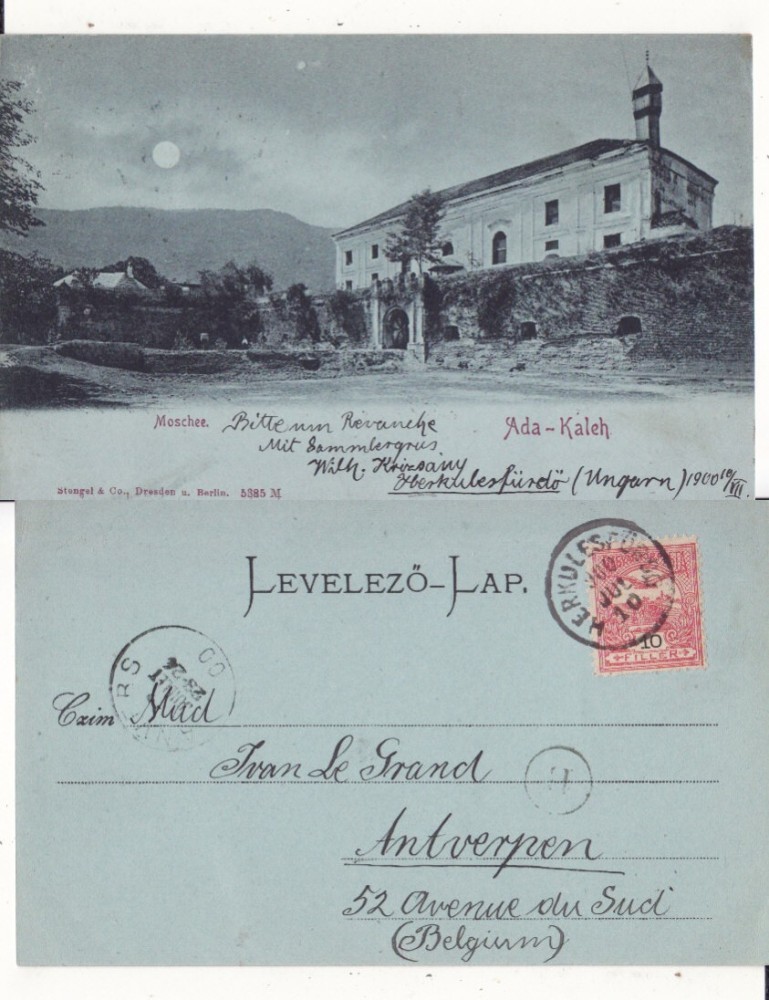 Moschee. Bitte um Revanche Ada-Kaleh
Mit Sammlergrus
Wilh. Krizsány
Herkulesfürdő (Ungarn) 1900 10/VII.
Stengel & Co., Dresden u. Berlin. 5385 M
LEVELEZŐ-LAP.
HERKULESFÜRDŐ
900
JUL
10
10
FILLER
RS
00
23-24
Czim Mad
Ivan Le Grand
Antverpen
52 Avenue du Sud
(Belgium)